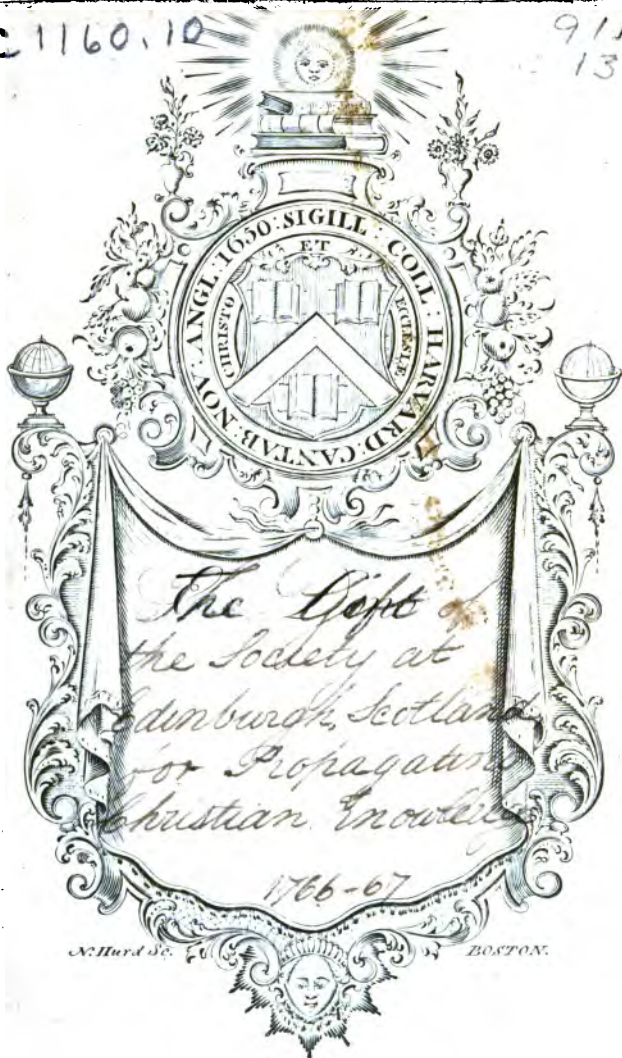 1160.10
SIGILL : COLL : HARVARD : CANTAB : NOV : ANGL : 1650 :
CHRISTO ET ECCLESIÆ
The Gift of
the Society at
Edinburgh, Scotland
for Propagating
Christian Knowledge
1766-67
N. Hurd Sc. BOSTON.